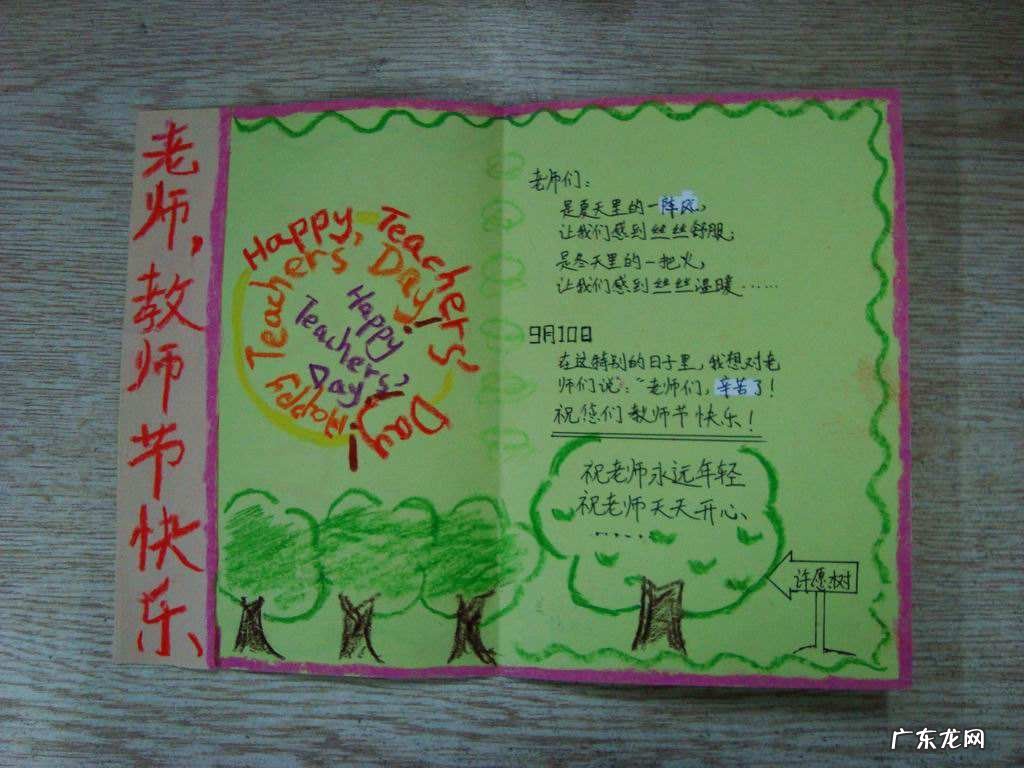 老师,教师节快乐
Happy, Teachers' Day!
Happy Teachers' Day!
Happy
Teachers'
Day!
老师们:
是夏天里的一阵风,
让我们感到丝丝舒服;
是冬天里的一把火,
让我们感到丝丝温暖……
9月10日
在这特别的日子里,我想对老
师们说:“老师们,辛苦了!
祝您们教师节快乐!
祝老师永远年轻
祝老师天天开心、
……
许愿树
广东龙网